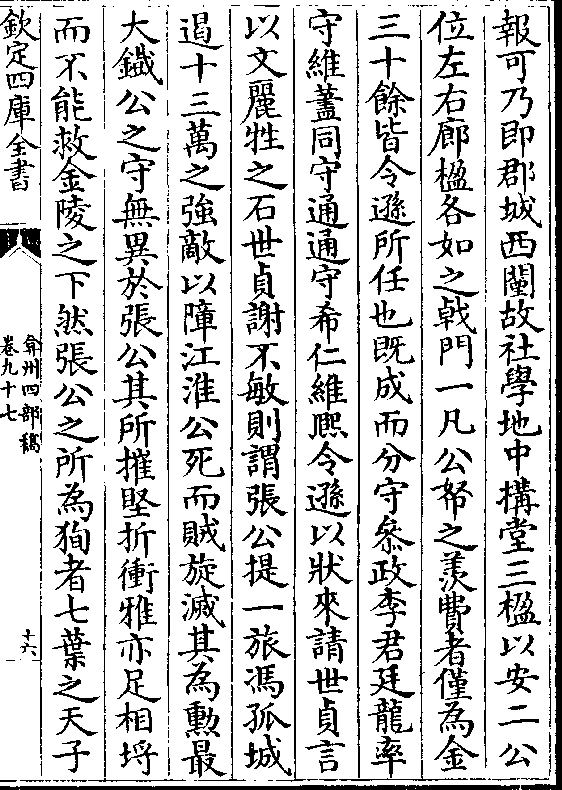 報可乃即郡城西闉故社學地中搆堂三楹以安二公
位左右廊楹各如之㦸門一凡公帑之羨費者僅為金
三十餘皆令遜所任也既成而分守叅政李君廷龍率
守維蓋同守通通守希仁維熈令遜以狀來請世貞言
以文麗牲之石世貞謝不敏則謂張公提一旅馮孤城
遏十三萬之強敵以障江淮公死而賊旋滅其為勲最
大鐡公之守無異於張公其所摧堅折衝雅亦足相埒
而不能救金陵之下然張公之所為狥者七葉之天子
欽定四庫全書
弇州四部稿
卷九十七
十六